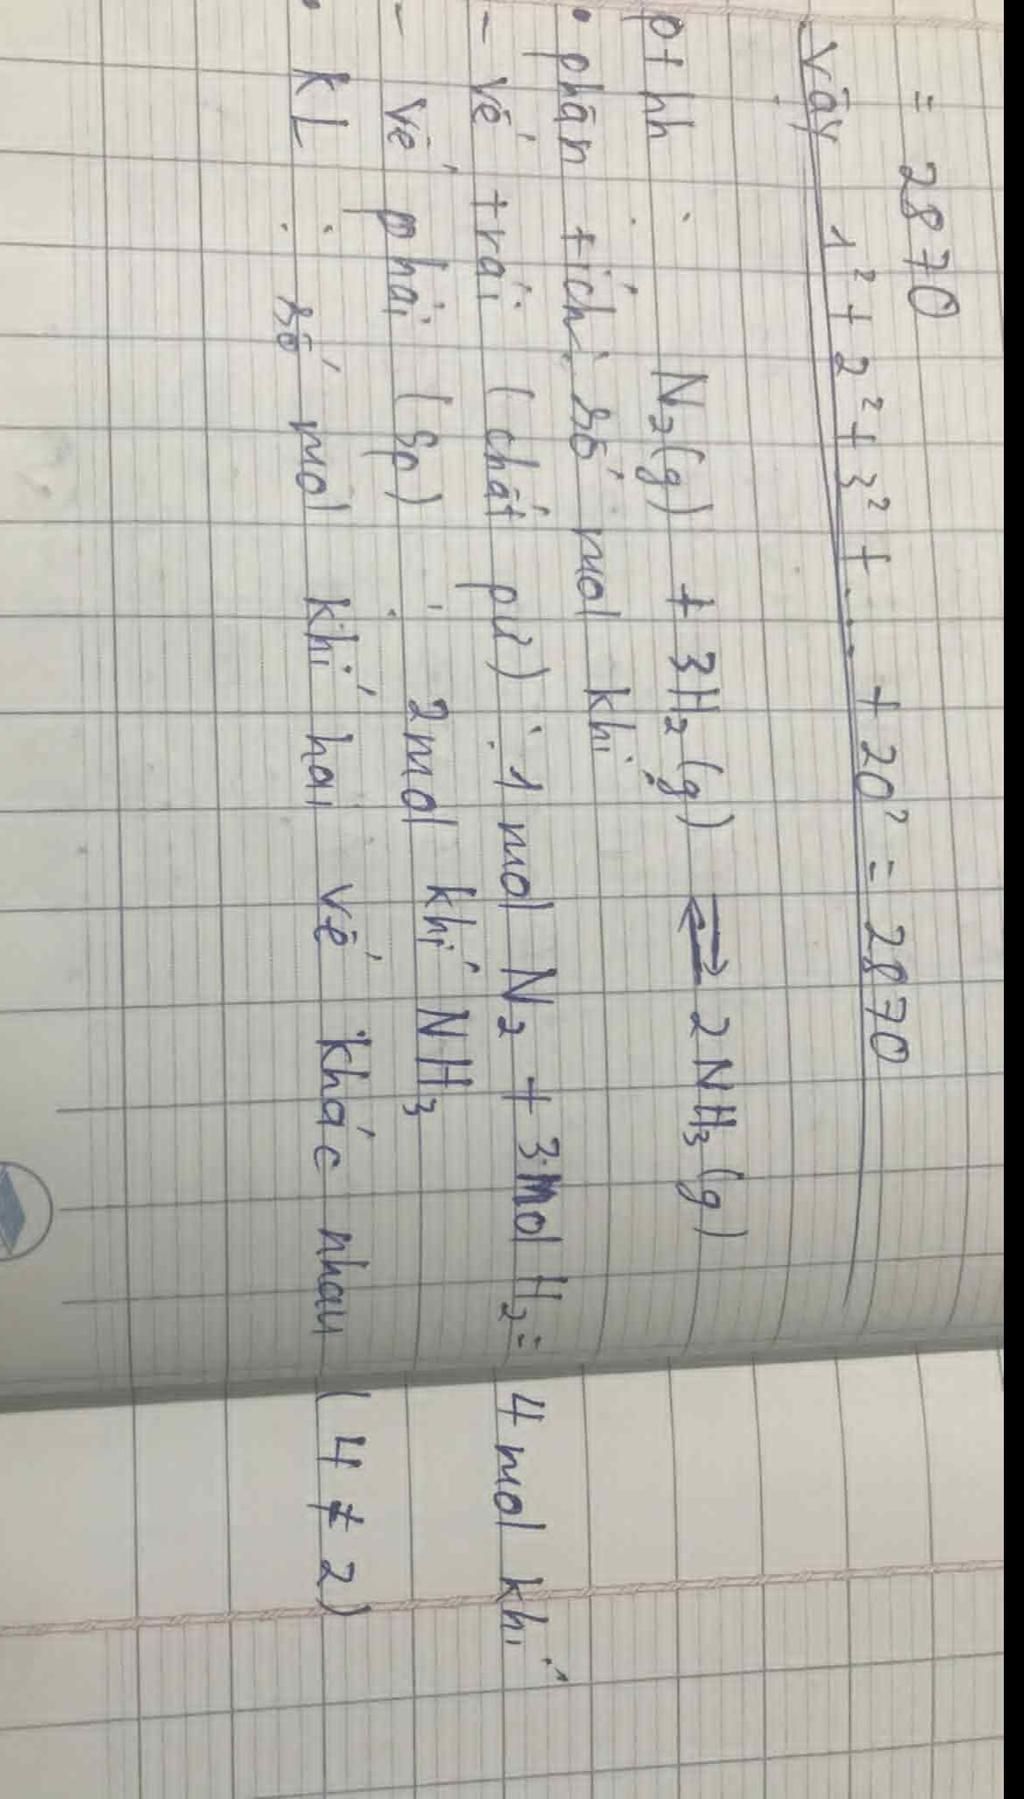 = 2870
Vậy 1² + 2² + 3² + .... + 20² = 2870
pthh : N₂(g) + 3H₂(g) ⇌ 2NH₃(g)
• phân tích: số mol khí
- vế trái (chất pứ) : 1 mol N₂ + 3 mol H₂ = 4 mol khí
- vế phải (sp) : 2mol khí NH₃
• KL : số mol khí hai vế khác nhau (4 ≠ 2)